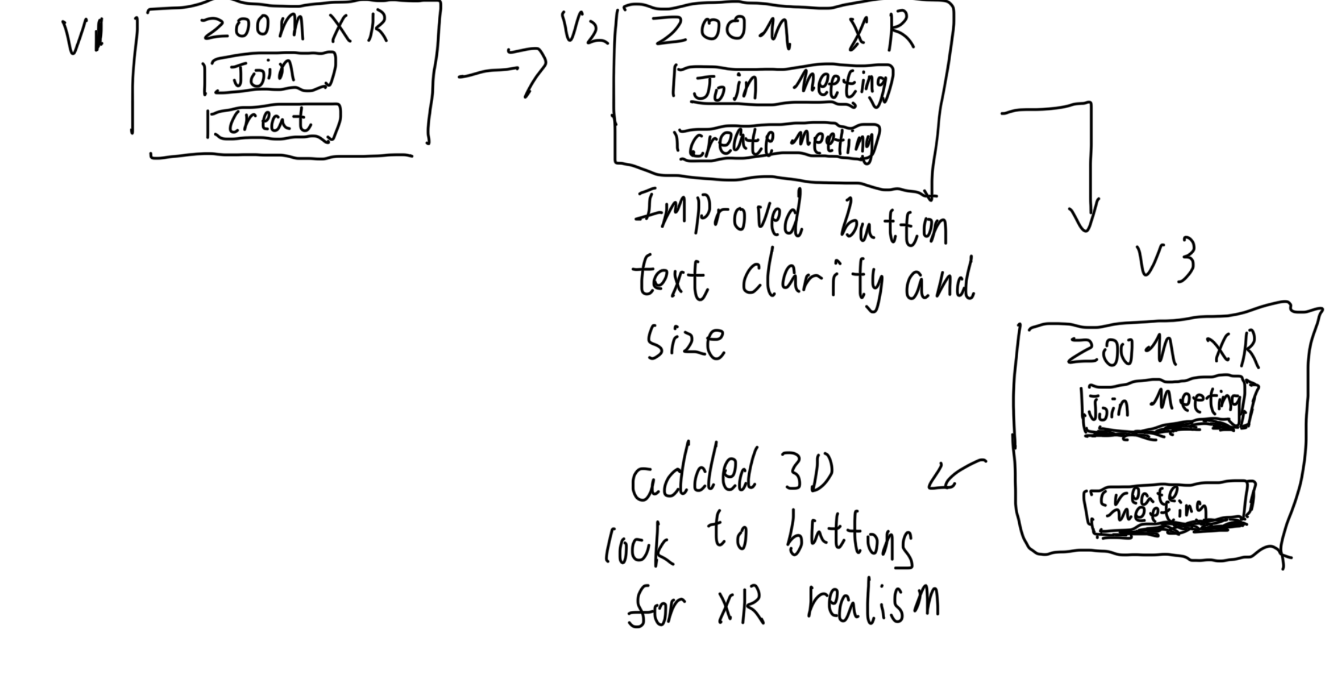 V1
ZOOM XR
Join
Creat
V2
ZOOM XR
Join Meeting
Create Meeting
Improved button
text clarity and
size
V3
ZOOM XR
Join Meeting
Create
Meeting
added 3D
look to buttons
for XR realism